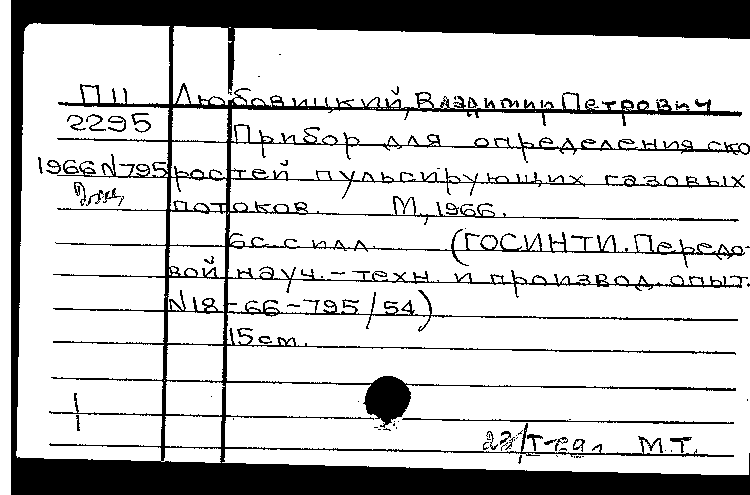 П11 Любовицкий, Владимир Петрович
2295 Прибор для определения ско
1966 N795 ростей пульсирующих газовых
потоков. М., 1966.
6с. с илл. (ГОСИНТИ. Передо-
вой науч.-техн. и производ. опыт.
N18-66-795/54)
15см.
М.Т.